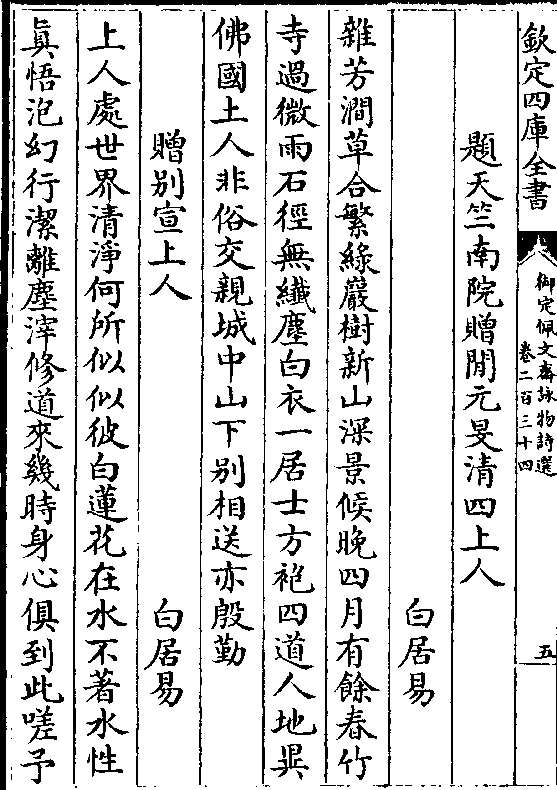 欽定四庫全書
御定佩文齋詠物詩選
卷二百三十四
五
題天竺南院贈閒元旻清四上人
白居易
雜芳澗草合繁綠巖樹新山深景候晚四月有餘春竹
寺過微雨石徑無纎塵白衣一居士方袍四道人地㠯
佛國土人非俗交親城中山下别相送亦殷勤
贈别宣上人
白居易
上人處世界清淨何所似似彼白蓮花在水不著水性
眞悟泡幻行潔離塵滓修道來幾時身心俱到此嗟予